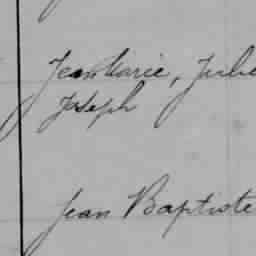 Jean Marie, Jule
Joseph
Jean Baptiste